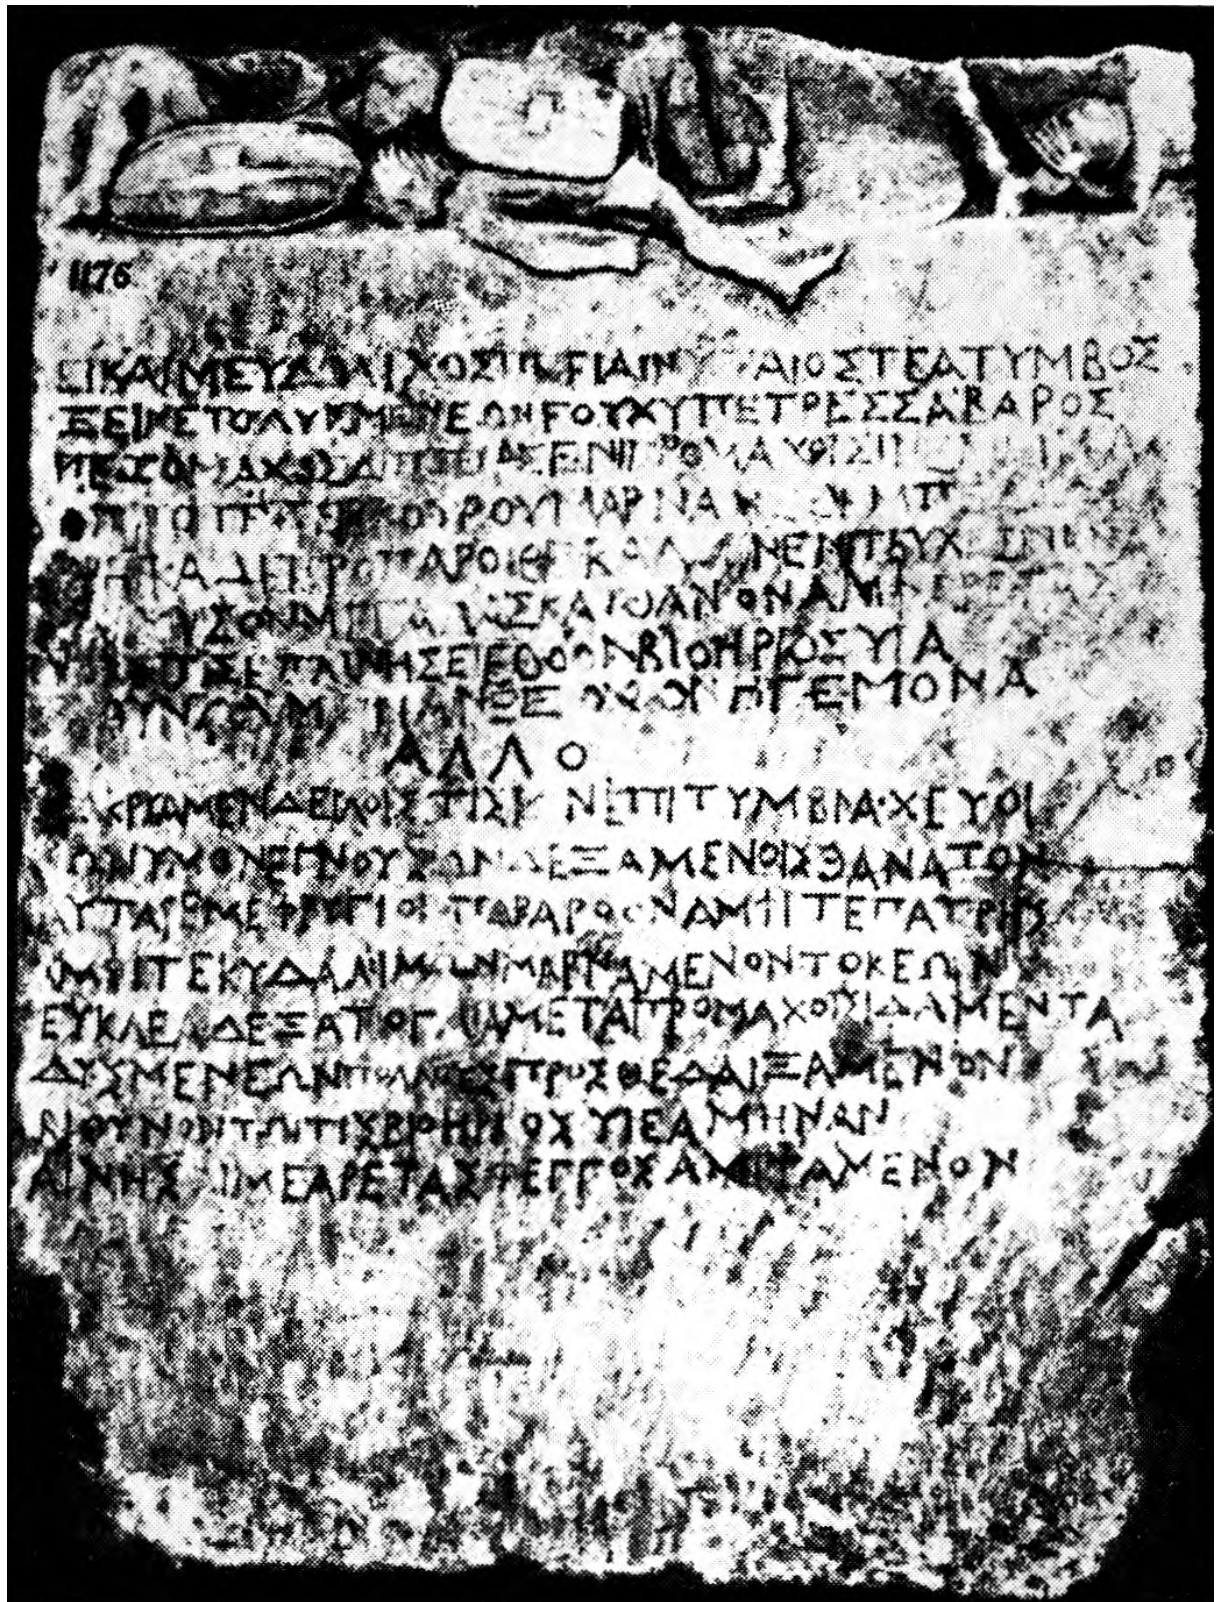 1176
ΕΙΚΑΙΜΕΥΔΟΛΙΧΟΣΠΕΡΙΑΙΝΥΤΑΙΟΣΤΕΑΤΥΜΒΟΣ
ΞΕΙΝΕΤΟΔΥΣΜΕΝΕΩΝΓΟΥΧΥΠΕΤΡΕΣΣΑΒΑΡΟΣ
ΠΕΖΟΜΑΧΟΣΔΙΠΠΕΙΑΣΕΝΙΠΡΟΜΑΧΟΙΣΙΝ
ΟΠΠΟΤΕΠΕΡΚΟΥΡΟΥΜΑΡΝΑΜΕΘΕΜΠ
ΘΡΗΙΚΑΔΕΠΡΟΠΑΡΟΙΘΕΒΑΛΩΝΕΝΙΤΕΥΧΕΣΙΝ
ΚΑΙΜΥΣΟΝΜΕΓΑΛΑΣΚΑΤΘΑΝΟΝΑΜΦΑΡΕΤΑΣ
ΤΩΙΤΙΣΕΠΑΙΝΗΣΕΙΕΘΟΟΝΒΙΟΗΡΙΟΣΥΙΑ
ΒΙΘΥΝΟΝΜΗΝΑΝΕΞΟΧΟΝΗΓΕΜΟΝΑ
ΑΛΛΟ
ΔΑΚΡΥΑΜΕΝΔΕΙΛΟΙΣΤΙΣΙΩΝΕΠΙΤΥΜΒΙΑΧΕΥΟΙ
ΝΩΝΥΜΟΝΕΓΝΟΥΣΩΝΔΕΞΑΜΕΝΟΙΣΘΑΝΑΤΟΝ
ΑΥΤΑΡΕΜΕΦΡΥΓΙΟΙΟΠΑΡΑΡΟΟΝΑΜΦΙΤΕΠΑΤΡΗΣ
ΑΜΦΙΤΕΚΥΔΑΛΙΜΩΝΜΑΡΝΑΜΕΝΟΝΤΟΚΕΩΝ
ΕΥΚΛΕΑΔΕΞΑΤΟΓΑΙΑΜΕΤΑΠΡΟΜΑΧΟΙΣΙΔΑΜΕΝΤΑ
ΔΥΣΜΕΝΕΩΝΠΟΛΛΟΥΣΠΡΟΣΘΕΔΑΙΞΑΜΕΝΟΝ
ΒΙΘΥΝΟΝΤΩΙΤΙΣΒΙΟΗΡΙΟΣΥΙΕΑΜΗΝΑΝ
ΑΙΝΗΣΑΙΜΕΑΡΕΤΑΣΦΕΓΓΟΣΑΜΕΙΨΑΜΕΝΟΝ